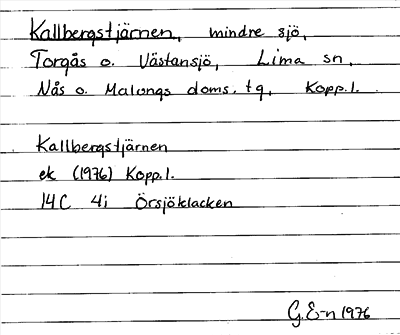 Kallbergstjärnen, mindre sjö,
Torgås o. Västansjö, Lima sn,
Nås o. Malungs doms. tg, Kopp.l.
Kallbergstjärnen
ek (1976) Kopp.l.
14C 4i Örsjöklacken
G.E-n 1976